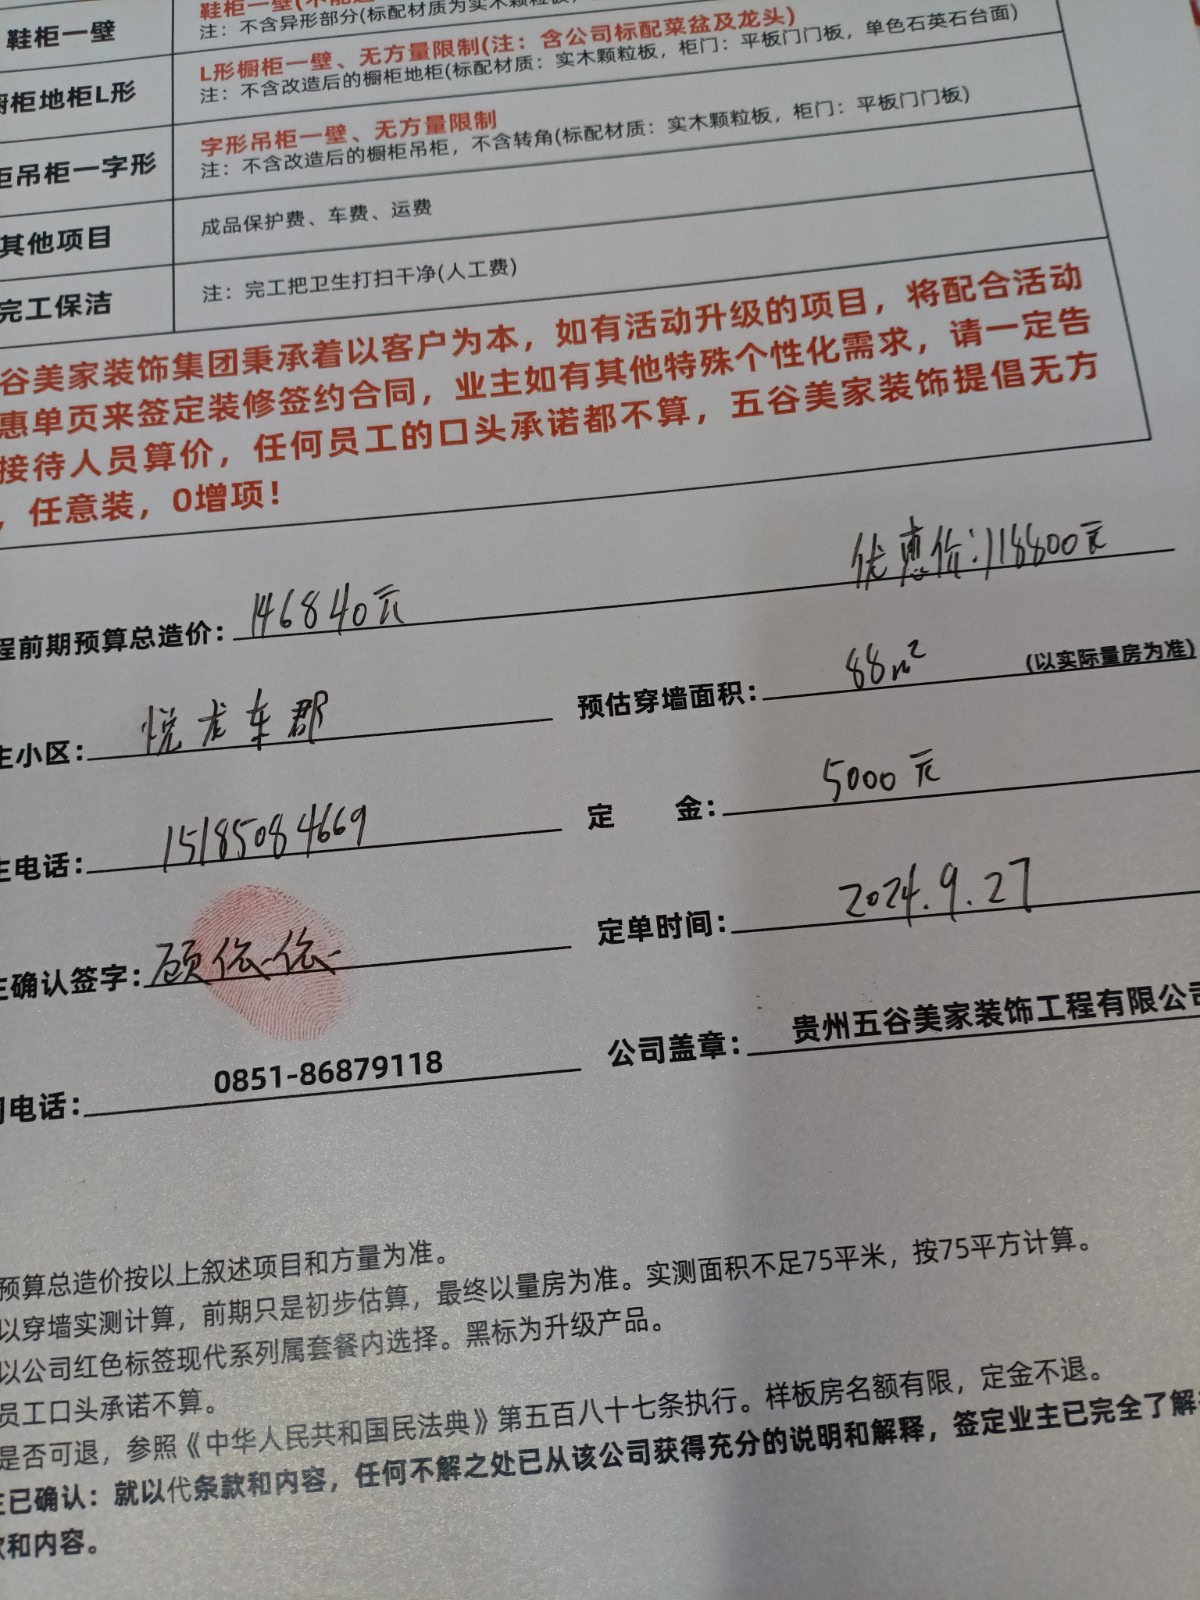 鞋柜一壁
注：不含异形部分(标配材质为实木颗粒板，
柜地柜L形
L形橱柜一壁、无方量限制(注：含公司标配菜盆及龙头)
注：不含改造后的橱柜地柜(标配材质：实木颗粒板，柜门：平板门门板，单色石英石台面)
吊柜一字形
字形吊柜一壁、无方量限制
注：不含改造后的橱柜吊柜，不含转角(标配材质：实木颗粒板，柜门：平板门门板)
其他项目
成品保护费、车费、运费
完工保洁
注：完工把卫生打扫干净(人工费)
谷美家装饰集团秉承着以客户为本，如有活动升级的项目，将配合活动
惠单页来签定装修签约合同，业主如有其他特殊个性化需求，请一定告
接待人员算价，任何员工的口头承诺都不算，五谷美家装饰提倡无方
，任意装，0增项！
程前期预算总造价：146840元 优惠价：118800元
主小区：悦龙东郡 预估穿墙面积：88m² (以实际量房为准)
主电话：15185084669 定 金：5000元
主确认签字：顾依依 定单时间：2024.9.27
司电话：0851-86879118 公司盖章：贵州五谷美家装饰工程有限公司
预算总造价按以上叙述项目和方量为准。
以穿墙实测计算，前期只是初步估算，最终以量房为准。实测面积不足75平米，按75平方计算。
以公司红色标签现代系列属套餐内选择。黑标为升级产品。
员工口头承诺不算。
是否可退，参照《中华人民共和国民法典》第五百八十七条执行。样板房名额有限，定金不退。
主已确认：就以代条款和内容，任何不解之处已从该公司获得充分的说明和解释，签定业主已完全了解
款和内容。